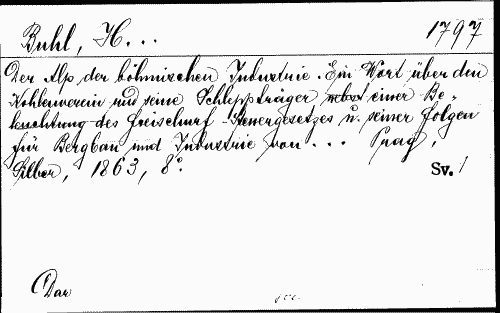 Buhl, H... 1797
Der Alp der böhmischen Industrie. Ein Wort über den
Kohlenverein und seine Schleppträger nebst einer Be-
leuchtung des Freischurf-Steuergesetzes u. seiner Folgen
für Bergbau und Industrie von ... Prag,
Silber, 1863, 8°. Sv. 1
Dar